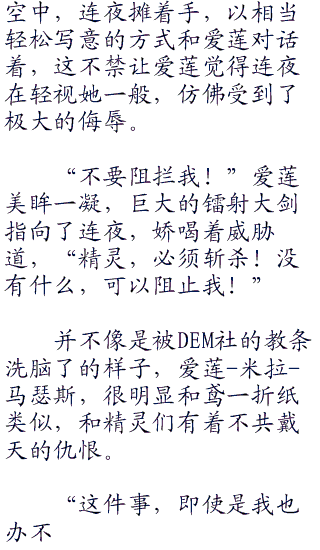 空中，连夜摊着手，以相当
轻松写意的方式和爱莲对话
着，这不禁让爱莲觉得连夜
在轻视她一般，仿佛受到了
极大的侮辱。
“不要阻拦我！”爱莲
美眸一凝，巨大的镭射大剑
指向了连夜，娇喝着威胁
道，“精灵，必须斩杀！没
有什么，可以阻止我！”
并不像是被DEM社的教条
洗脑了的样子，爱莲-米拉-
马瑟斯，很明显和鸢一折纸
类似，和精灵们有着不共戴
天的仇恨。
“这件事，即使是我也
办不